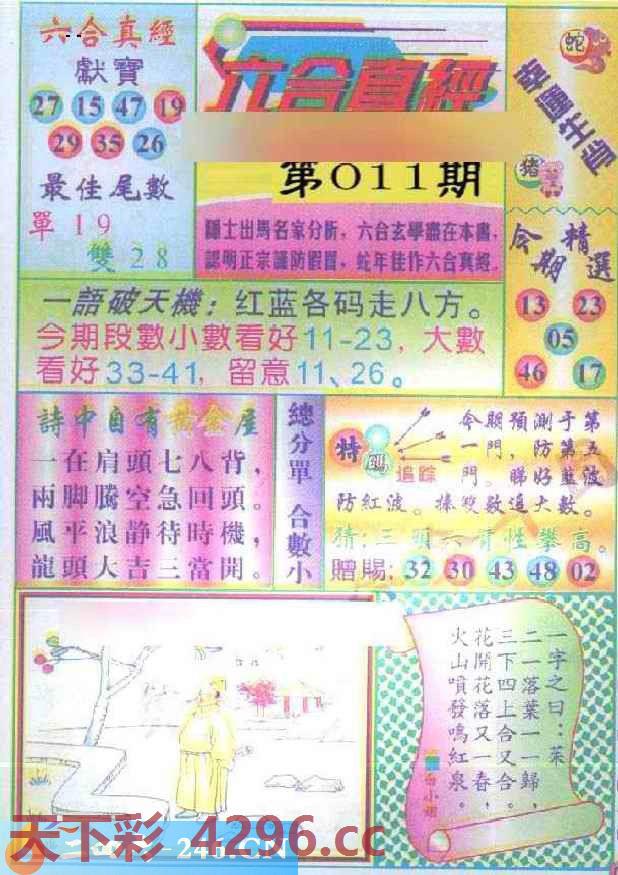 六合真經
獻寶
27 15 47 19
29 35 26
最佳尾數
單19
雙28
六合真經
第011期
隱士出馬名家分析，六合玄學盡在本書，
認明正宗謹防假冒，蛇年佳作六合真經。
蛇
豬
今期精選
13 23
05
46 17
一語破天機：红蓝各码走八方。
今期段數小數看好11-23，大數
看好33-41，留意11、26。
詩中自有黃金屋
一在肩頭七八背，
兩脚騰空急回頭。
風平浪静待時機，
龍頭大吉三當開。
總分單 合數小
特碼
追踪
今期預測于第
一門，防第五
門。睇好藍波
防紅波。揍双数追大數。
猜：三頭六膏性攀高。
贈賜：32 30 43 48 02
一字之曰：菜
二一落葉一一歸，
三下四上合又合。
花開花落又一春，
火山噴發鳴紅泉。
天下彩 4296.cc
246.CN